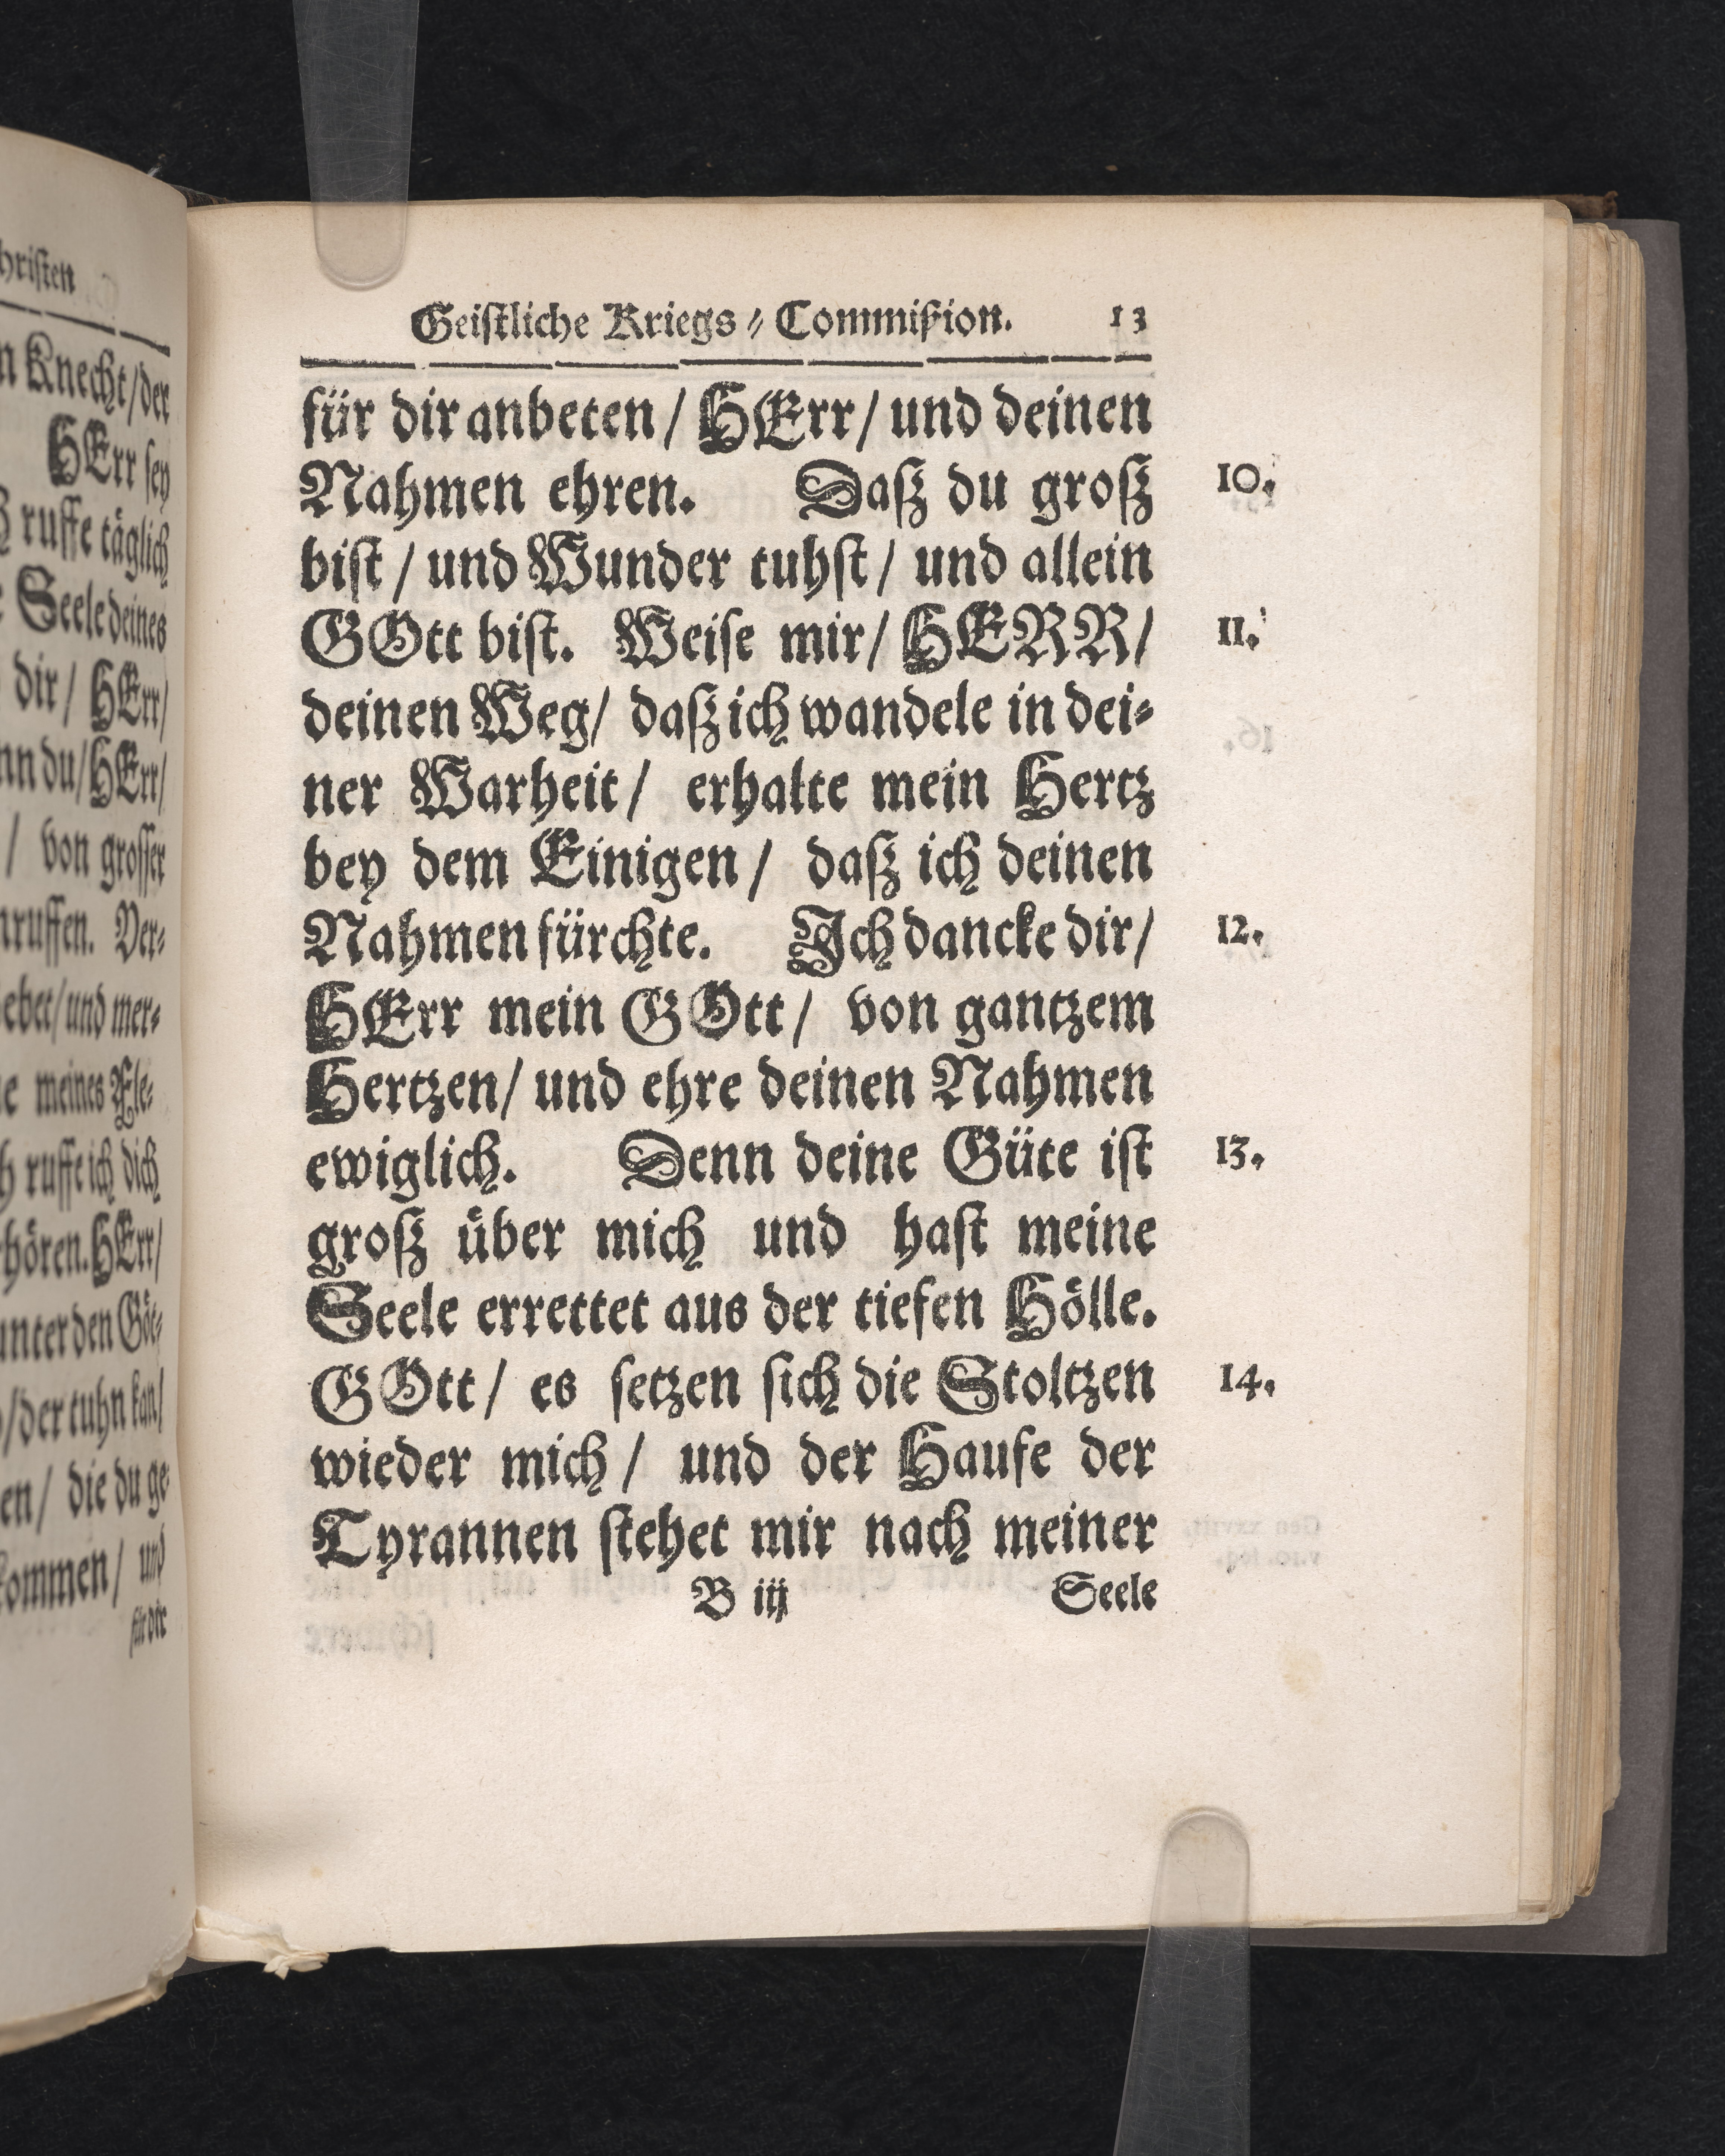 hristen
n Knecht/der
HErr sey
ruffe täglich
Seele deines
dir/ HErr/
nn du/HErr/
/ von grosser
nruffen. Ver⸗
ebet/und mer⸗
meines Fle⸗
h ruffe ich dich
hören. HErr/
unter den Göt⸗
/der tuhn kan/
en/ die du ge⸗
kommen/ und
für dir
Geistliche Kriegs⸗Commißion. 13
für dir anbeten/ HErr/ und deinen
Nahmen ehren. Daß du groß 10.
bist/ und Wunder tuhst/ und allein
GOtt bist. Weise mir/ HERR/ 11.
deinen Weg/ daß ich wandele in dei⸗
ner Warheit/ erhalte mein Hertz
bey dem Einigen/ daß ich deinen
Nahmen fürchte. Ich dancke dir/ 12.
HErr mein GOtt/ von gantzem
Hertzen/ und ehre deinen Nahmen
ewiglich. Denn deine Güte ist 13.
groß über mich und hast meine
Seele errettet aus der tiefen Hölle.
GOtt/ es setzen sich die Stoltzen 14.
wieder mich/ und der Haufe der
Tyrannen stehet mir nach meiner
B iij Seele